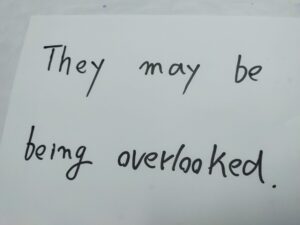 They may be
being overlooked.